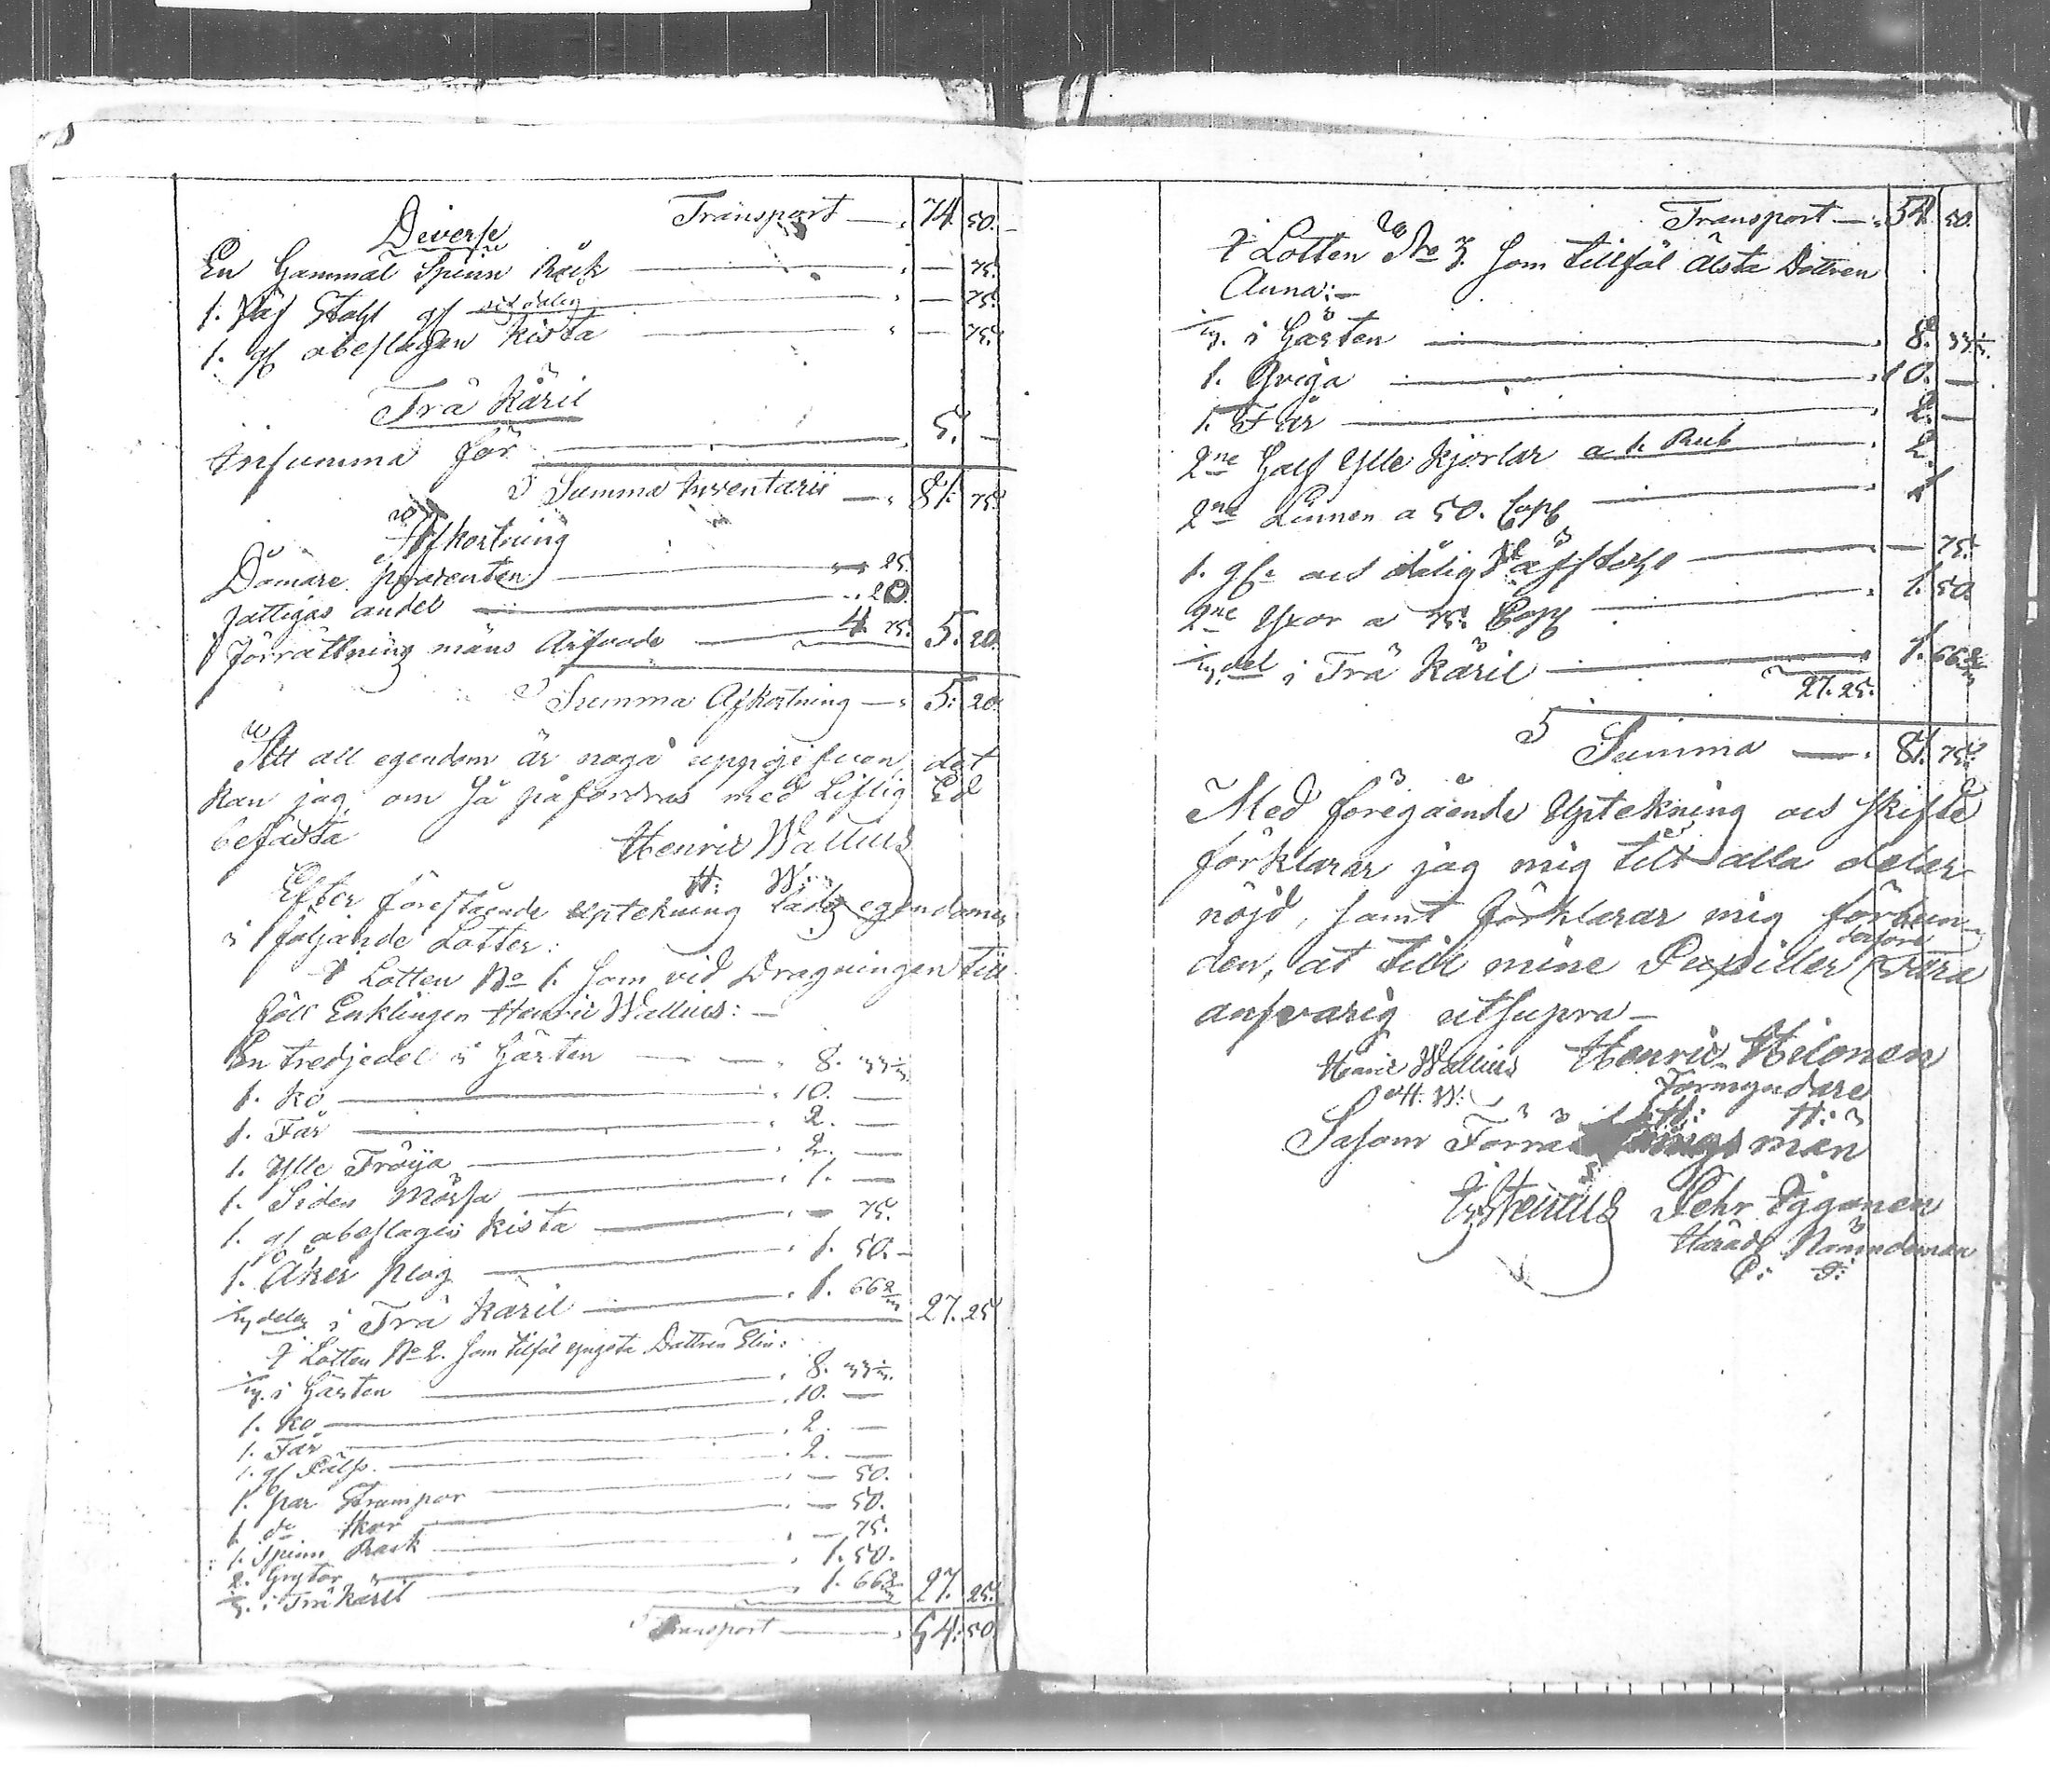 Transport — 74. 50.
Diverse
En Gammal Spinn Råck — — 75.
1. Väf Stohl gl och dålig — — 75.
1. gl obeslagen Kista — — 75.
Trä Käril
Insumma för — 5. —
Summa Inventarii — 81. 75.
Afkortning
Domare procenten — 25.
Fattigas andel — 20.
Förrättnings mäns Arfvode — 4. 75. 5. 20.
Summa Afkortning — 5. 20.
Att all egendom är noga uppgifven, det
kan jag, om så påfordras med Liflig Ed
befästa
Henric Wallius
H: W:
Efter förestående Uptekning lades egendomen
i följande Lotter:
I Lotten No 1. som vid Dragningen till
föll Enklingen Henric Wallius: —
En tredjedel i Gärten — 8. 33 1/3.
1. Ko — 10. —
1. Får — 2. —
1. Ylle Tröija — 2. —
1. Siden Mössa — 1. —
1. gl obeslagen Kista — — 75.
1. Åker plog — 1. 50. —
1/3 delen i Trä Käril — 1. 66 2/3 27. 25
I Lotten No 2. som tilföl yngsta Dottren Elin:
1/3. i Gärten — 8. 33 1/3.
1. Ko — 10. —
1. Får — 2. —
1. gl Pälss. — 2. —
1. par Strumpor — — 50.
1 do Skor — — 50.
1. Spinn Rack — — 75.
2. Grytor — 1. 50.
1/3. i Trä Käril — 1. 66 2/3 27. 25.
Transport — 54. 50.
Transport — 54. 50.
I Lotten No 3. som tillföl Älsta Dottren
Anna: —
1/3. i Gärten — 8. 33 1/3.
1. Qviga — 10. —
1. Får — 2. —
2ne Half Ylle Kjorlar a 1. Rub — 2.
2ne Linnen a 50. Cop — 1
1. gl och dålig Väfstohl — — 75.
2ne Yxor a 75. Cop — 1. 50.
1/3 del i Trä Käril — 1. 66 2/3
27. 25.
Summa — 81. 75.
Med föregående Uptekning och skifte
förklarar jag mig till alla delar
nöjd, samt förklarar mig förbun-
den, at till mine Pupiller derföre vara
ansvarig utsupra —
Henric Wallius Henric Hilonen
H. W: Förmyndare
H: H:
Såsom Förrättnings män
Pehr Iggonen
Härads Nämndeman
P: I: